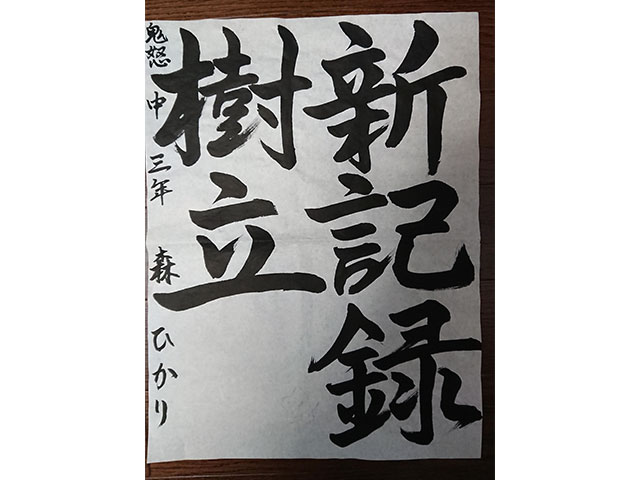 新記録
樹立
鬼怒中三年森ひかり